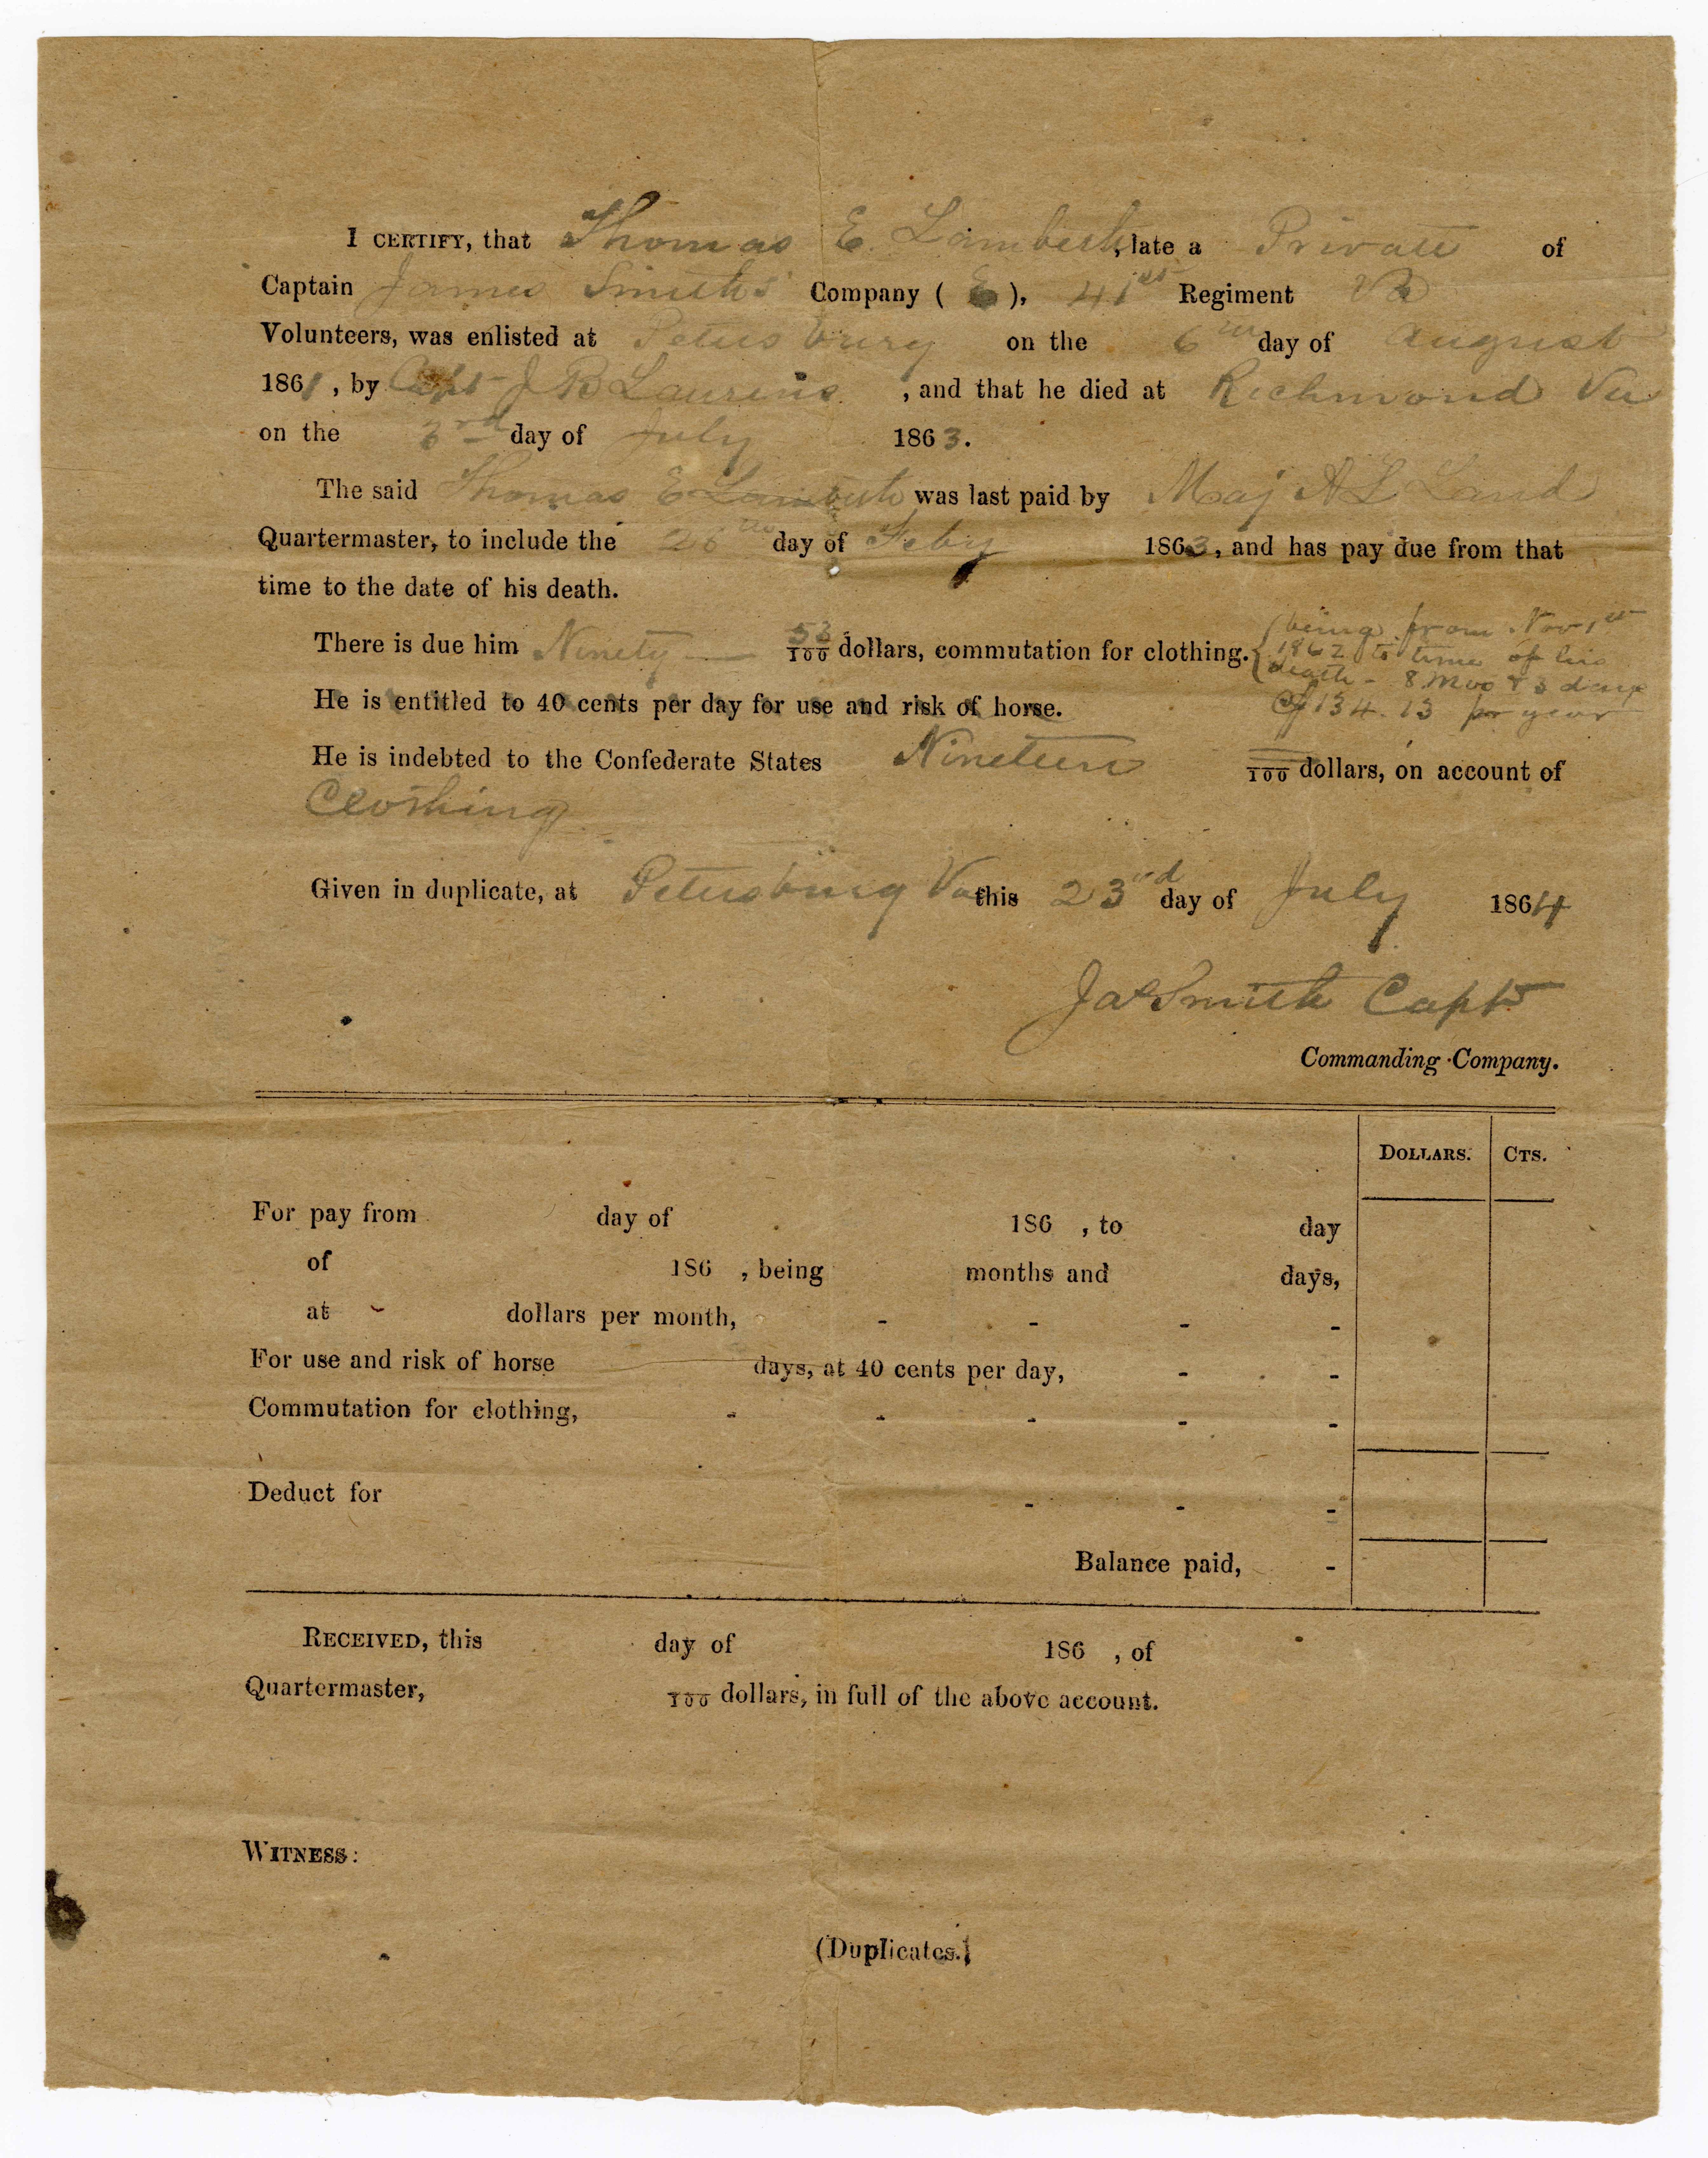 I CERTIFY, that Thomas E. Lambeth, late a Private of
Captain James Smith's Company ( E ), 41st Regiment Va
Volunteers, was enlisted at Petersburg on the 6th day of August
1861, by Capt J B Laurens, and that he died at Richmond Va
on the 3rd day of July 1863.
The said Thomas E Lambeth was last paid by Maj A L Land
Quartermaster, to include the 28th day of Feby 1863, and has pay due from that
time to the date of his death.
There is due him Ninety — 53/100 dollars, commutation for clothing. { being from Nov 1st
1862 to time of his
death - 8 mos & 3 days
@ 134.13 per year
He is entitled to 40 cents per day for use and risk of horse.
He is indebted to the Confederate States Nineteen /100 dollars, on account of
Clothing
Given in duplicate, at Petersburg Va this 23rd day of July 1864
Jas Smith Capt
Commanding Company.
DOLLARS. CTS.
For pay from day of 186 , to day
of 186 , being months and days,
at dollars per month, - - - -
For use and risk of horse days, at 40 cents per day, - -
Commutation for clothing, - - - - -
Deduct for - - -
Balance paid, -
RECEIVED, this day of 186 , of
Quartermaster, /100 dollars, in full of the above account.
WITNESS:
(Duplicates.)